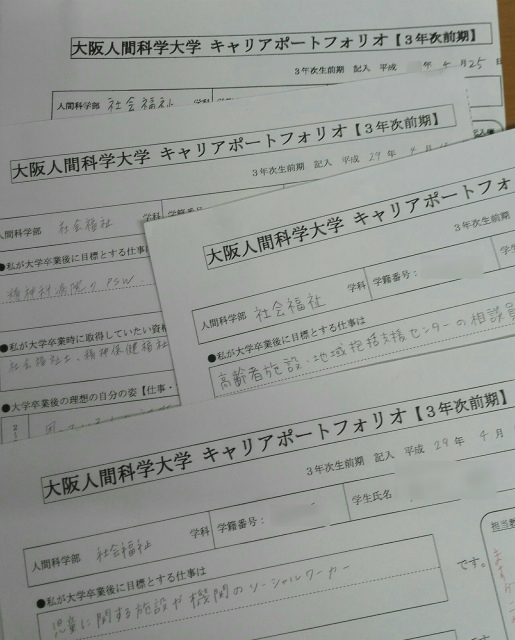 大阪人間科学大学 キャリアポートフォリオ【３年次前期】
３年次生前期 記入 平成 年 4 月 25 日
人間科学部 社会福祉 学科
大阪人間科学大学 キャリアポートフォリオ【３年次前期】
３年次生前期 記入 平成 29 年 4
人間科学部 社会福祉 学科 学籍番号
●私が大学卒業後に目標とする仕事
精神科病院の PSW
●私が大学卒業時に取得していたい資格
社会福祉士、精神保健福祉
●大学卒業後の理想の自分の姿【仕事・
大阪人間科学大学 キャリアポートフォ
３年次生前期
人間科学部 社会福祉 学科 学籍番号： 学生
●私が大学卒業後に目標とする仕事は
高齢者施設、地域包括支援センターの相談員
大阪人間科学大学 キャリアポートフォリオ【３年次前期】
３年次生前期 記入 平成 29 年 4 月
人間科学部 社会福祉 学科 学籍番号： 学生氏名
●私が大学卒業後に目標とする仕事は
児童に関する施設や機関のソーシャルワーカー
です。
担当